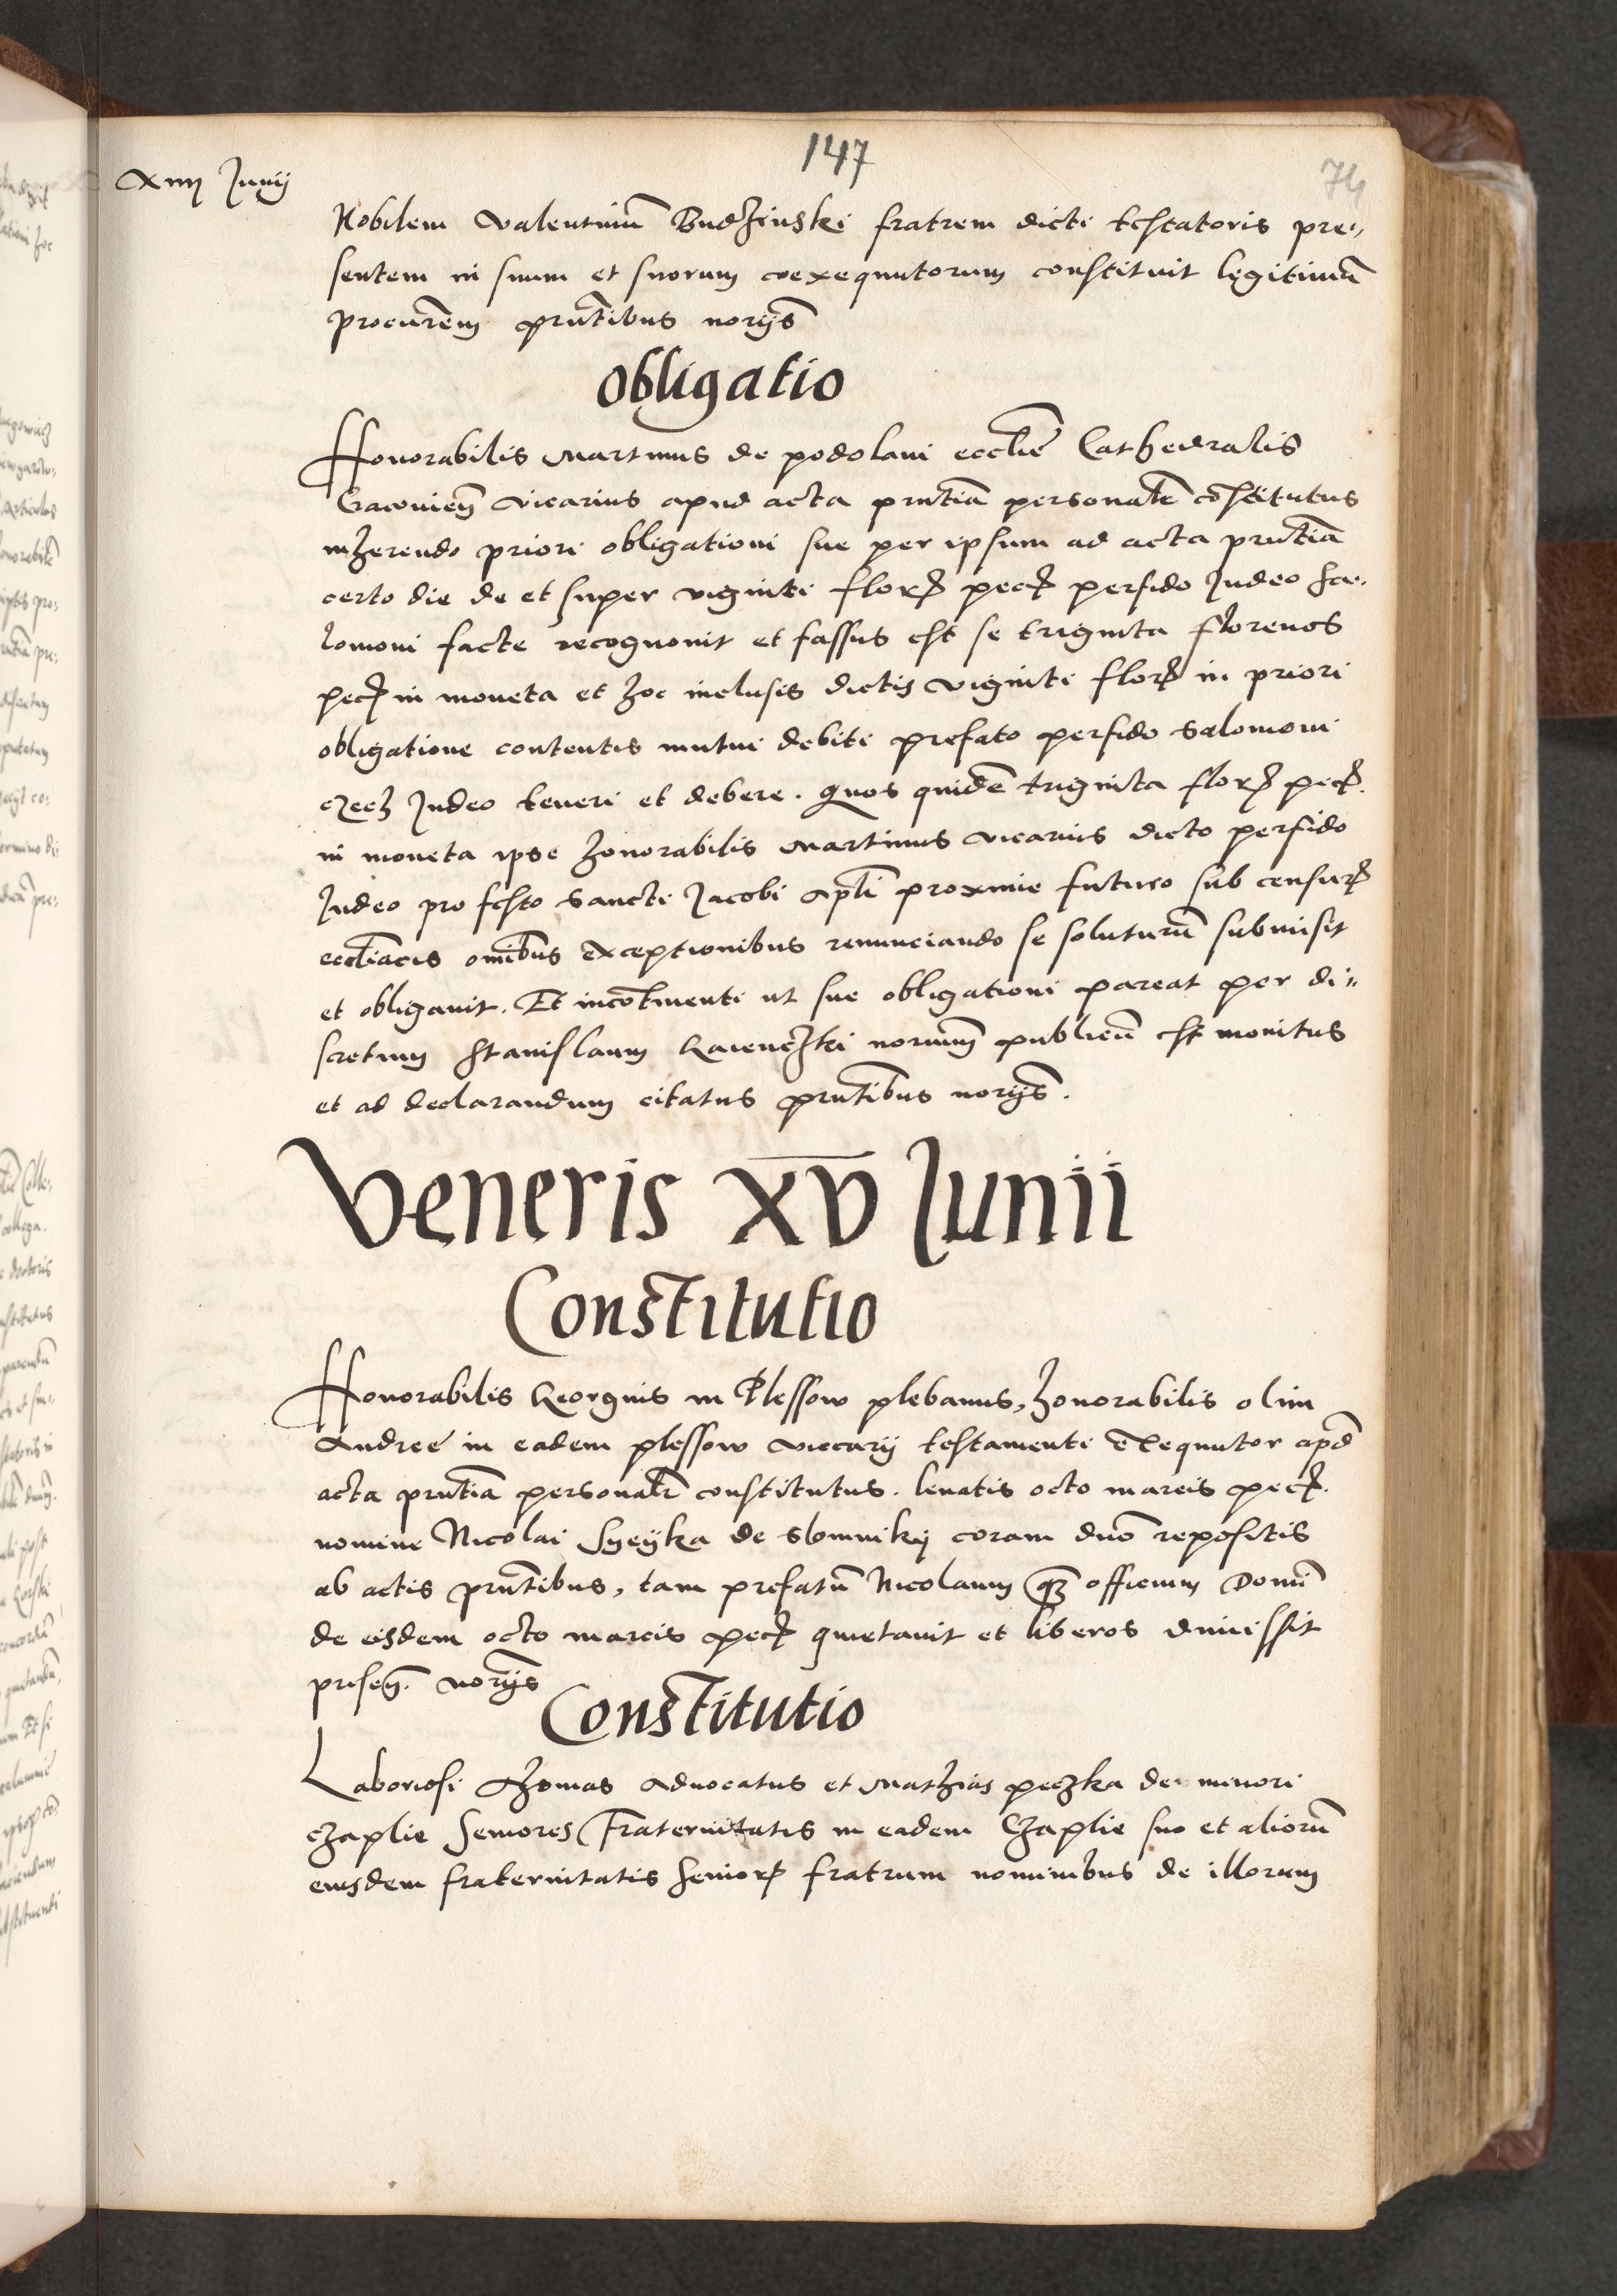 147
74
xiiij Junij
Nobilem Valentinũ Budzinski fratrem dicti testatoris pre,,
sentem in suum et suorum coexequutorum constituit legitimũ
procurem̃ prñtibus norijs̃
Obligatio
Honorabilis Martinus de podolani ecclie͂ Cathedralis
Cracovien͂ vicarius apud acta prñtia personalr͂ cõstitutus
inherendo priori obligationi sue per ipsum ad acta prñtia
certo die de et super viginti flor͂ pec͂ perfido Judeo Sa,,
lomoni facte recognovit et fassus est se triginta florenos
pec͂ in moneta et hoc inclusis dictis viginti flor͂ in priori
obligatione contentis mutui debiti prefato perfido Salomoni
czech Judeo teneri et debere. Quos quidẽ triginta flor͂ pec͂.
in moneta ipse honorabilis Martinus vicarius dicto perfido
Judeo pro festo Sancti Jacobi apli͂ proxime futuro sub censur͂
ecclia͂cis omĩbus exceptionibus renunciando se soluturũ submisit
et obligavit. Et incõtinenti ut sue obligationi pareat per di,,
scretum Stanislaum norium͂ publicũ est monitus
et ad declarandum citatus prñtibus norijs̃.
Veneris XV Junii
Constitutio
Honorabilis Georgius in Plessow plebanus, honorabilis olim
Andree in eadem plessow viccarij testamenti exequutor apd͂
acta prñtia personalr͂ constitutus. levatis octo marcis pec͂.
nomine Nicolai Syeyka de Slomniky coram dno͂ repositis
ab actis prñtibus, tam prefatũ Nicolaum q͂ officium Domi͂
de eisdem octo marcis pec͂ quietavit et liberos dimissit
presen͂. norijs̃
Constitutio
Laboriosi Thomas Advocatus et Mathias peczka de minori
czaplie Seniores Fraternitatis in eadem Czaplie suo et aliorũ
eiusdem fraternitatis senior͂ fratrum nominibus de illorum